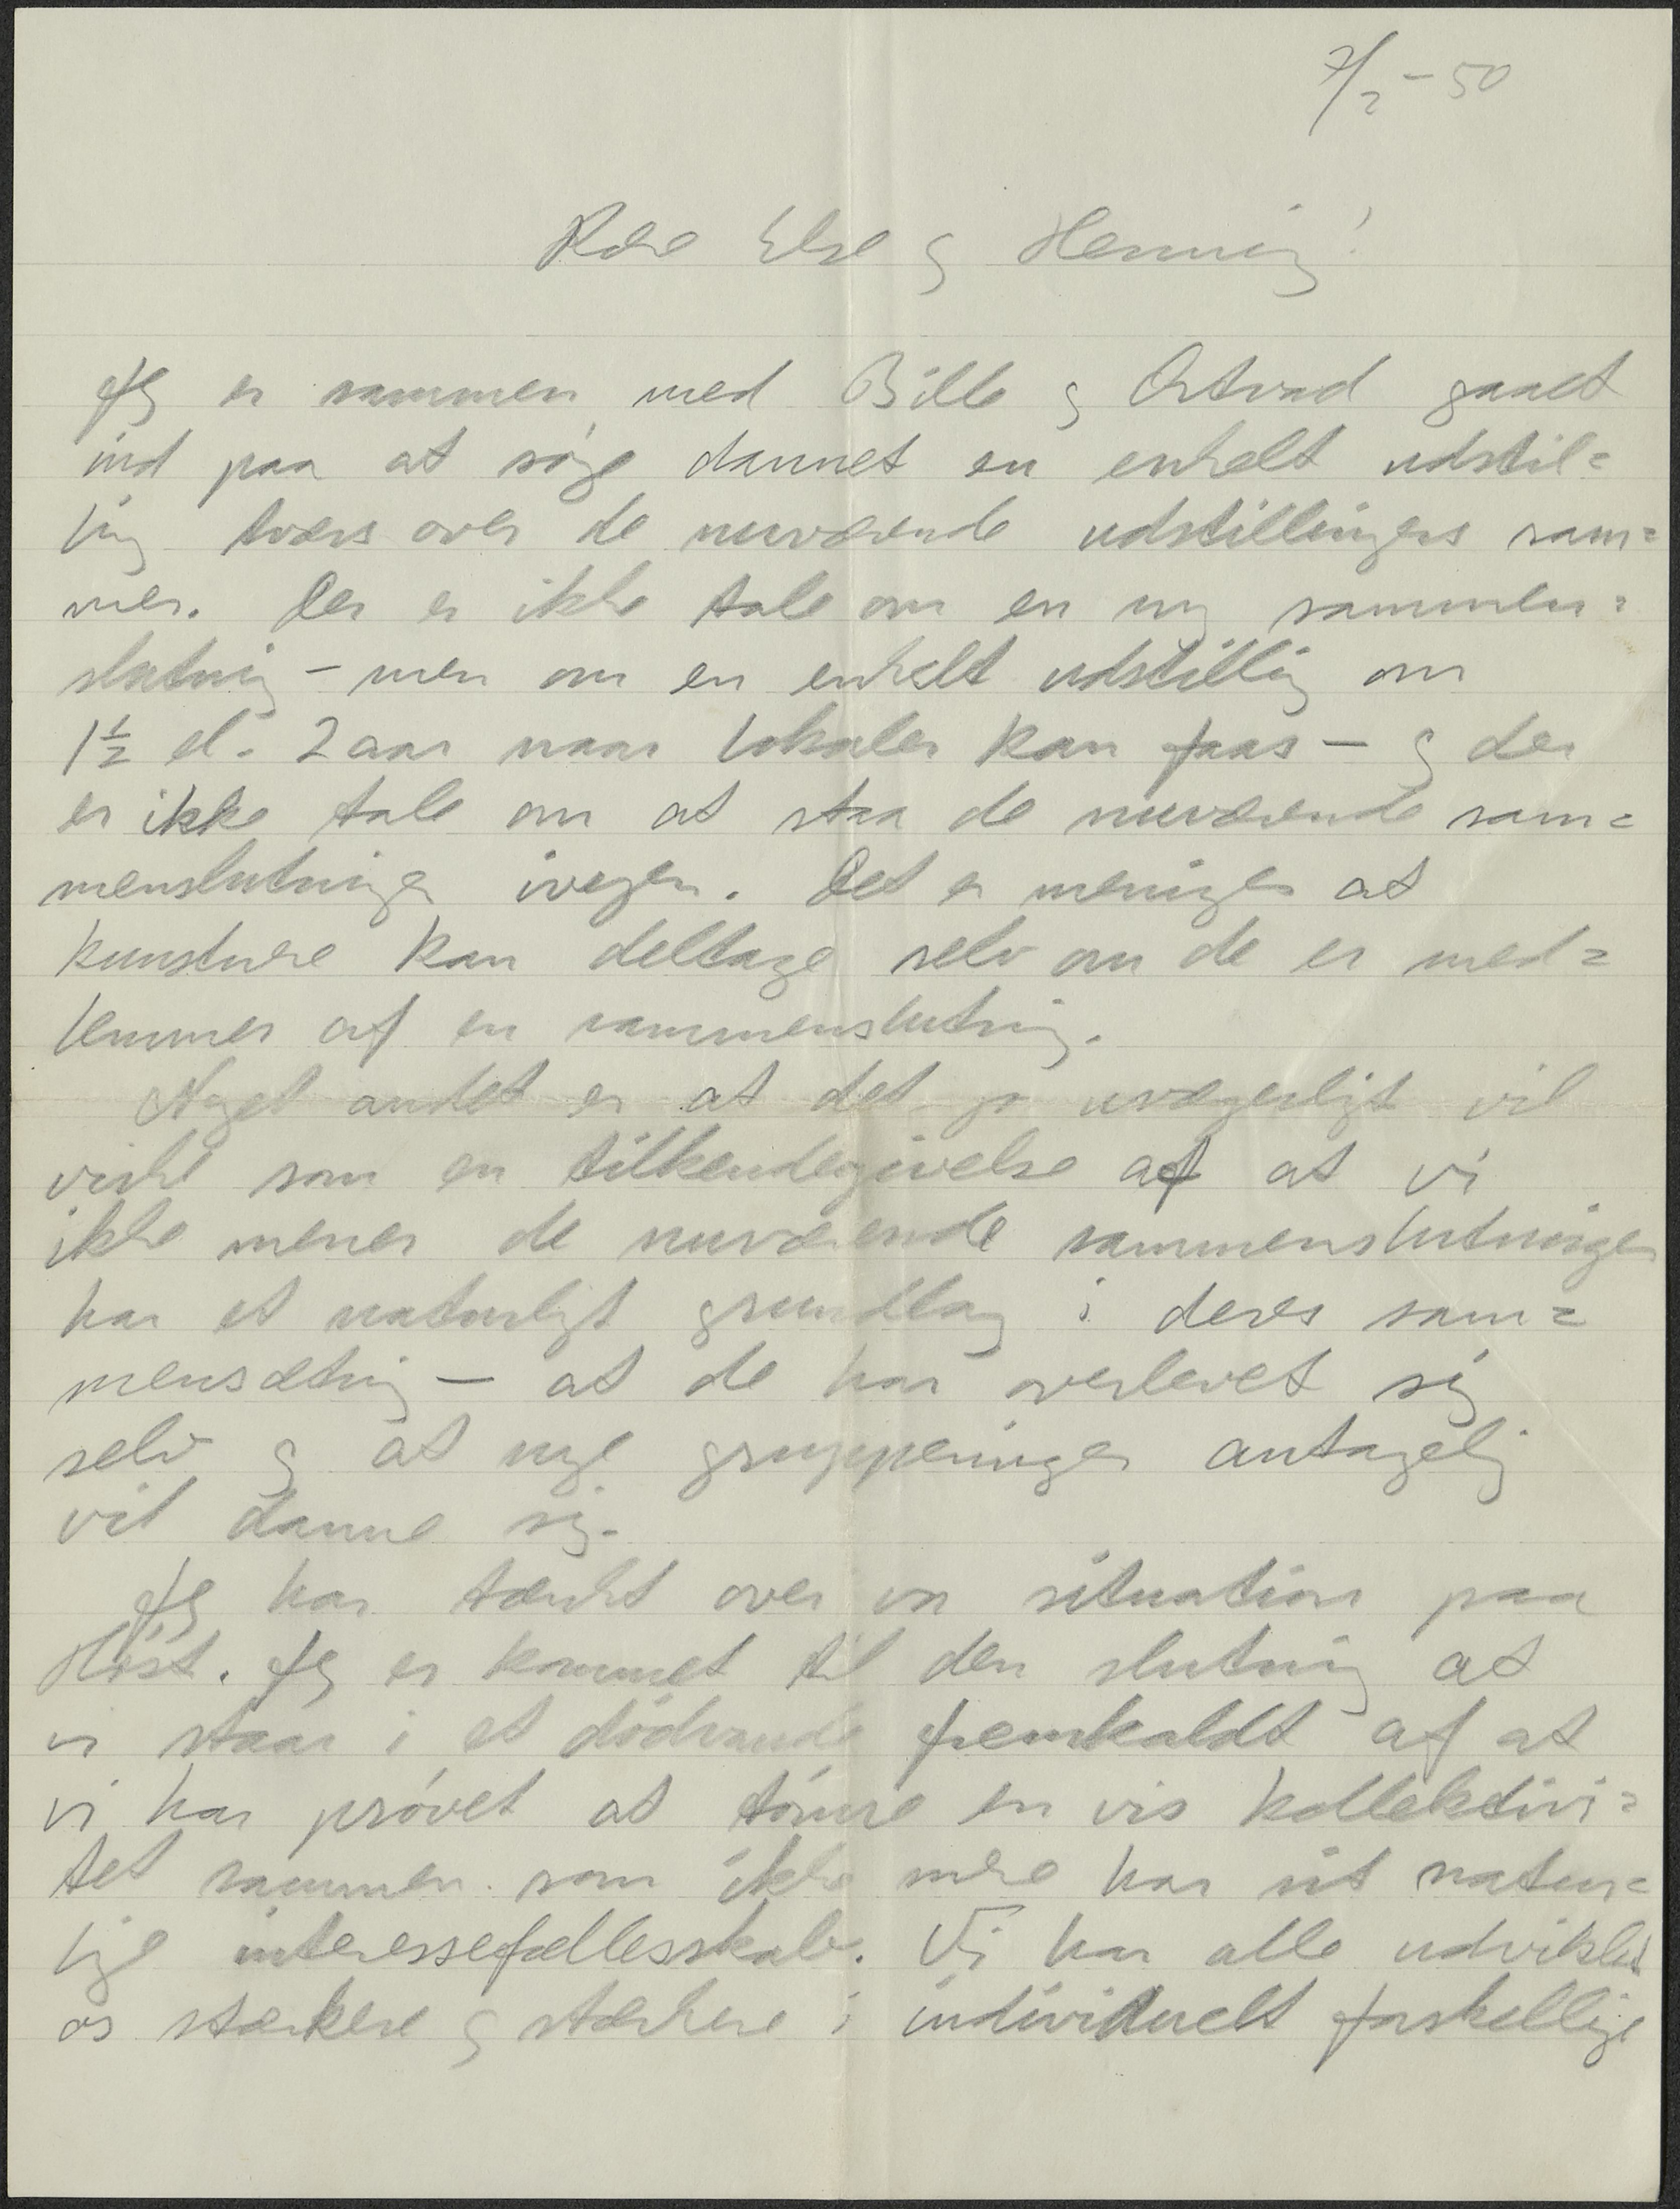 7/2 - 50
Kære Else og Henning!
Jeg er sammen med Bille og Ortvad gaaet
ind paa at søge dannet en enkelt udstil=
ling tværs over de nuværende udstillingers ram=
mer. Der er ikke tale om en ny sammen=
slutning – men om en enkelt udstilling om
1½ el. 2 aar naar lokaler kan faas – og der
er ikke tale om at staa de nuværende sam=
menslutninger ivejen. Det er meningen at
kunstnere kan deltage selv om de er med=
lemmer af en sammenslutning.
Noget andet er at det jo uvægerligt vil
virke som en tilkendegivelse af at vi
ikke mener de nuværende sammenslutninger
har et naturligt grundlag i deres sam=
mensætning – at de har overlevet sig
selv og at nye grupperinger antagelig
vil danne sig.
Jeg har tænkt over vor situation paa
Høst. Jeg er kommet til den slutning at
vi staar i et dødvande fremkaldt af at
vi har prøvet at tømre en vis kollektivi=
tet sammen som ikke mere har sit natur=
lige interessefællesskab. Vi har alle udviklet
os stærkere og stærkere i individuelt forskellige